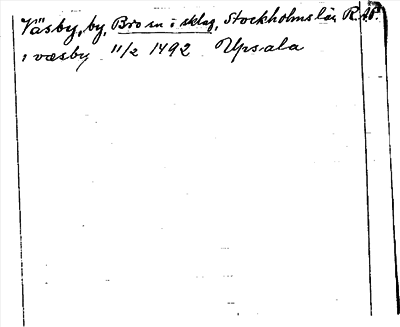 Väsby, by, Bro sn i sklag, Stockholms län R.A.P.
i væsby 11/2 1492 Upsala